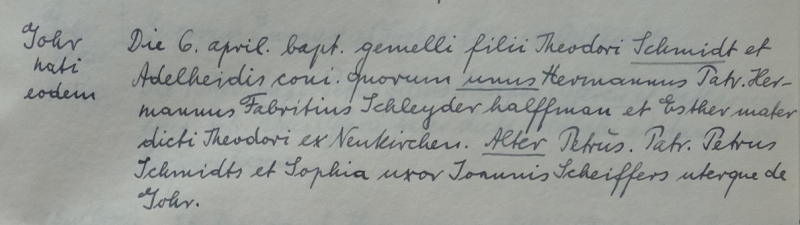 Gohr
nati
eodem
Die 6. april. bapt. gemelli filii Theodori Schmidt et
Adelheidis coni. quorum unus Hermannus Patr. Her-
mannus Fabritius Schleyder halffman et Esther mater
dicti Theodori ex Neukirchen. Alter Petrus. Patr. Petrus
Schmidts et Sophia uxor Joannis Scheiffers uterque de
Gohr.